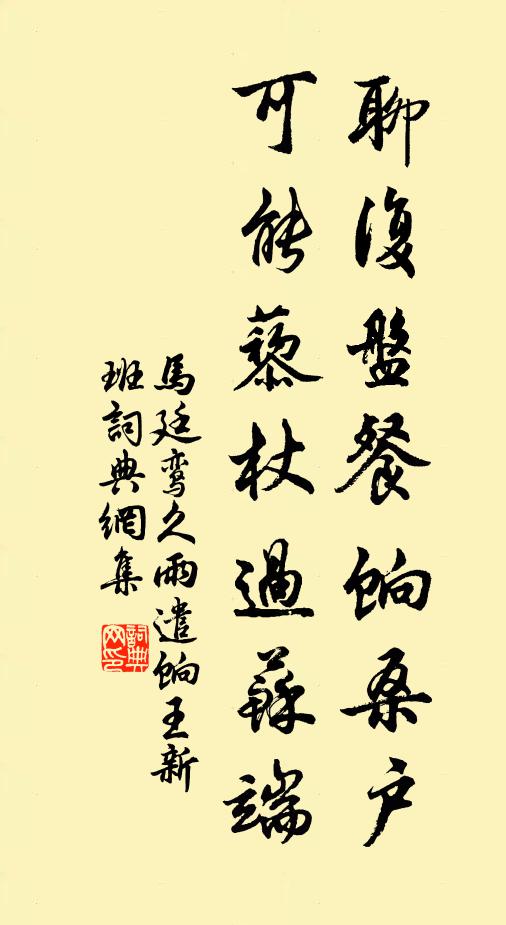 聊復盤餐餉桑戶
可能藜杖過蘇端
馬廷鸞久雨遣餉王新
班詞典網集
詞典網印